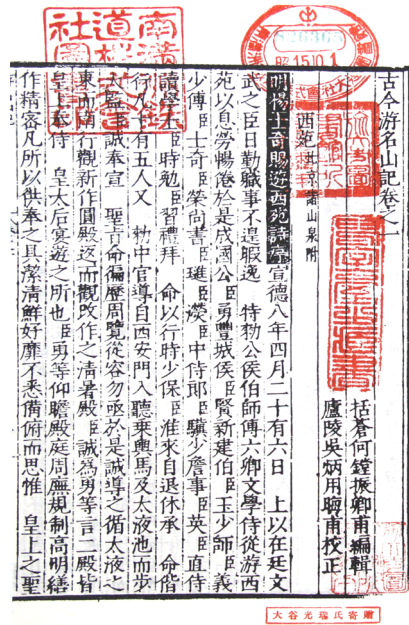 古今游名山記卷之一
括蒼何鏜振卿甫編輯
廬陵吳炳用晦甫校正
西苑 北京諸山泉附
明楊士奇賜遊西苑詩序 宣德八年四月二十有六日 上以在廷文
武之臣日勤職事不遑暇逸 特勑公侯伯師傅六卿文學侍從游西
苑以息勞暢倦於是成國公臣勇豐城侯臣賢新建伯臣玉少師臣義
少傅臣士奇臣榮尚書臣璡臣濙臣中侍郎臣驥少詹事臣英臣直侍
讀學士臣時勉臣習禮拜 命以行時少保臣淮來自退休承 命偕
行凡十有五人又 勑中官導自西安門入聽乗輿馬及太液池而步
太監臣誠奉宣 聖旨命徧歷周覽從容勿亟於是誠導之循太液之
東而南行觀新作圓殿返而觀改作之清暑殿臣誠為勇等言二殿皆
皇上奉侍 皇太后宴遊之所也臣勇等仰瞻殿庭周廡規制高明繕
作精密凡所以供奉之具潔清鮮好靡不悉備俯而思惟 皇上之聖
昭15.10.1
大谷光瑞氏寄贈